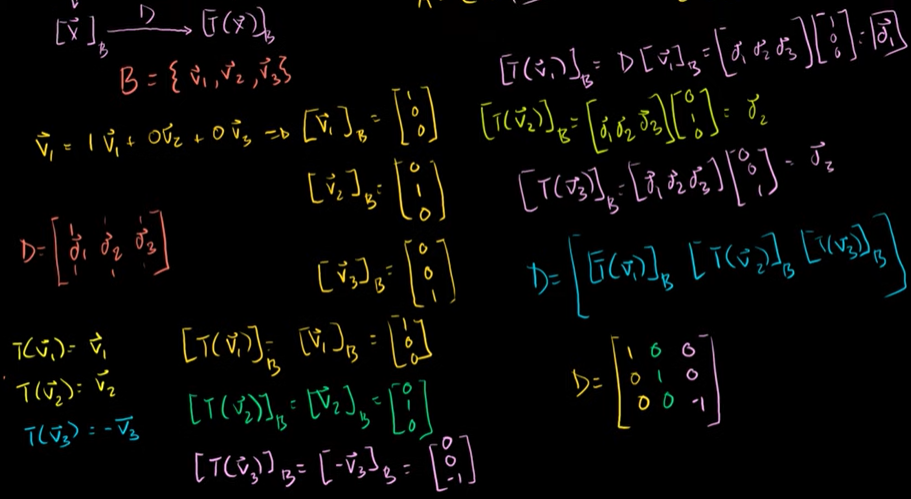 [x⃗]_B —D→ [T(x⃗)]_B
B = {v⃗₁, v⃗₂, v⃗₃}
v⃗₁ = 1v⃗₁ + 0v⃗₂ + 0v⃗₃ ⇒ [v⃗₁]_B = [1 0 0]
[v⃗₂]_B = [0 1 0]
[v⃗₃]_B = [0 0 1]
D = [d⃗₁ d⃗₂ d⃗₃]
T(v⃗₁) = v⃗₁
T(v⃗₂) = v⃗₂
T(v⃗₃) = -v⃗₃
[T(v⃗₁)]_B = [v⃗₁]_B = [1 0 0]
[T(v⃗₂)]_B = [v⃗₂]_B = [0 1 0]
[T(v⃗₃)]_B = [-v⃗₃]_B = [0 0 -1]
[T(v⃗₁)]_B = D[v⃗₁]_B = [d⃗₁ d⃗₂ d⃗₃][1 0 0] = d⃗₁
[T(v⃗₂)]_B = [d⃗₁ d⃗₂ d⃗₃][0 1 0] = d⃗₂
[T(v⃗₃)]_B = [d⃗₁ d⃗₂ d⃗₃][0 0 1] = d⃗₃
D = [[T(v⃗₁)]_B [T(v⃗₂)]_B [T(v⃗₃)]_B]
D = [1 0 0
0 1 0
0 0 -1]